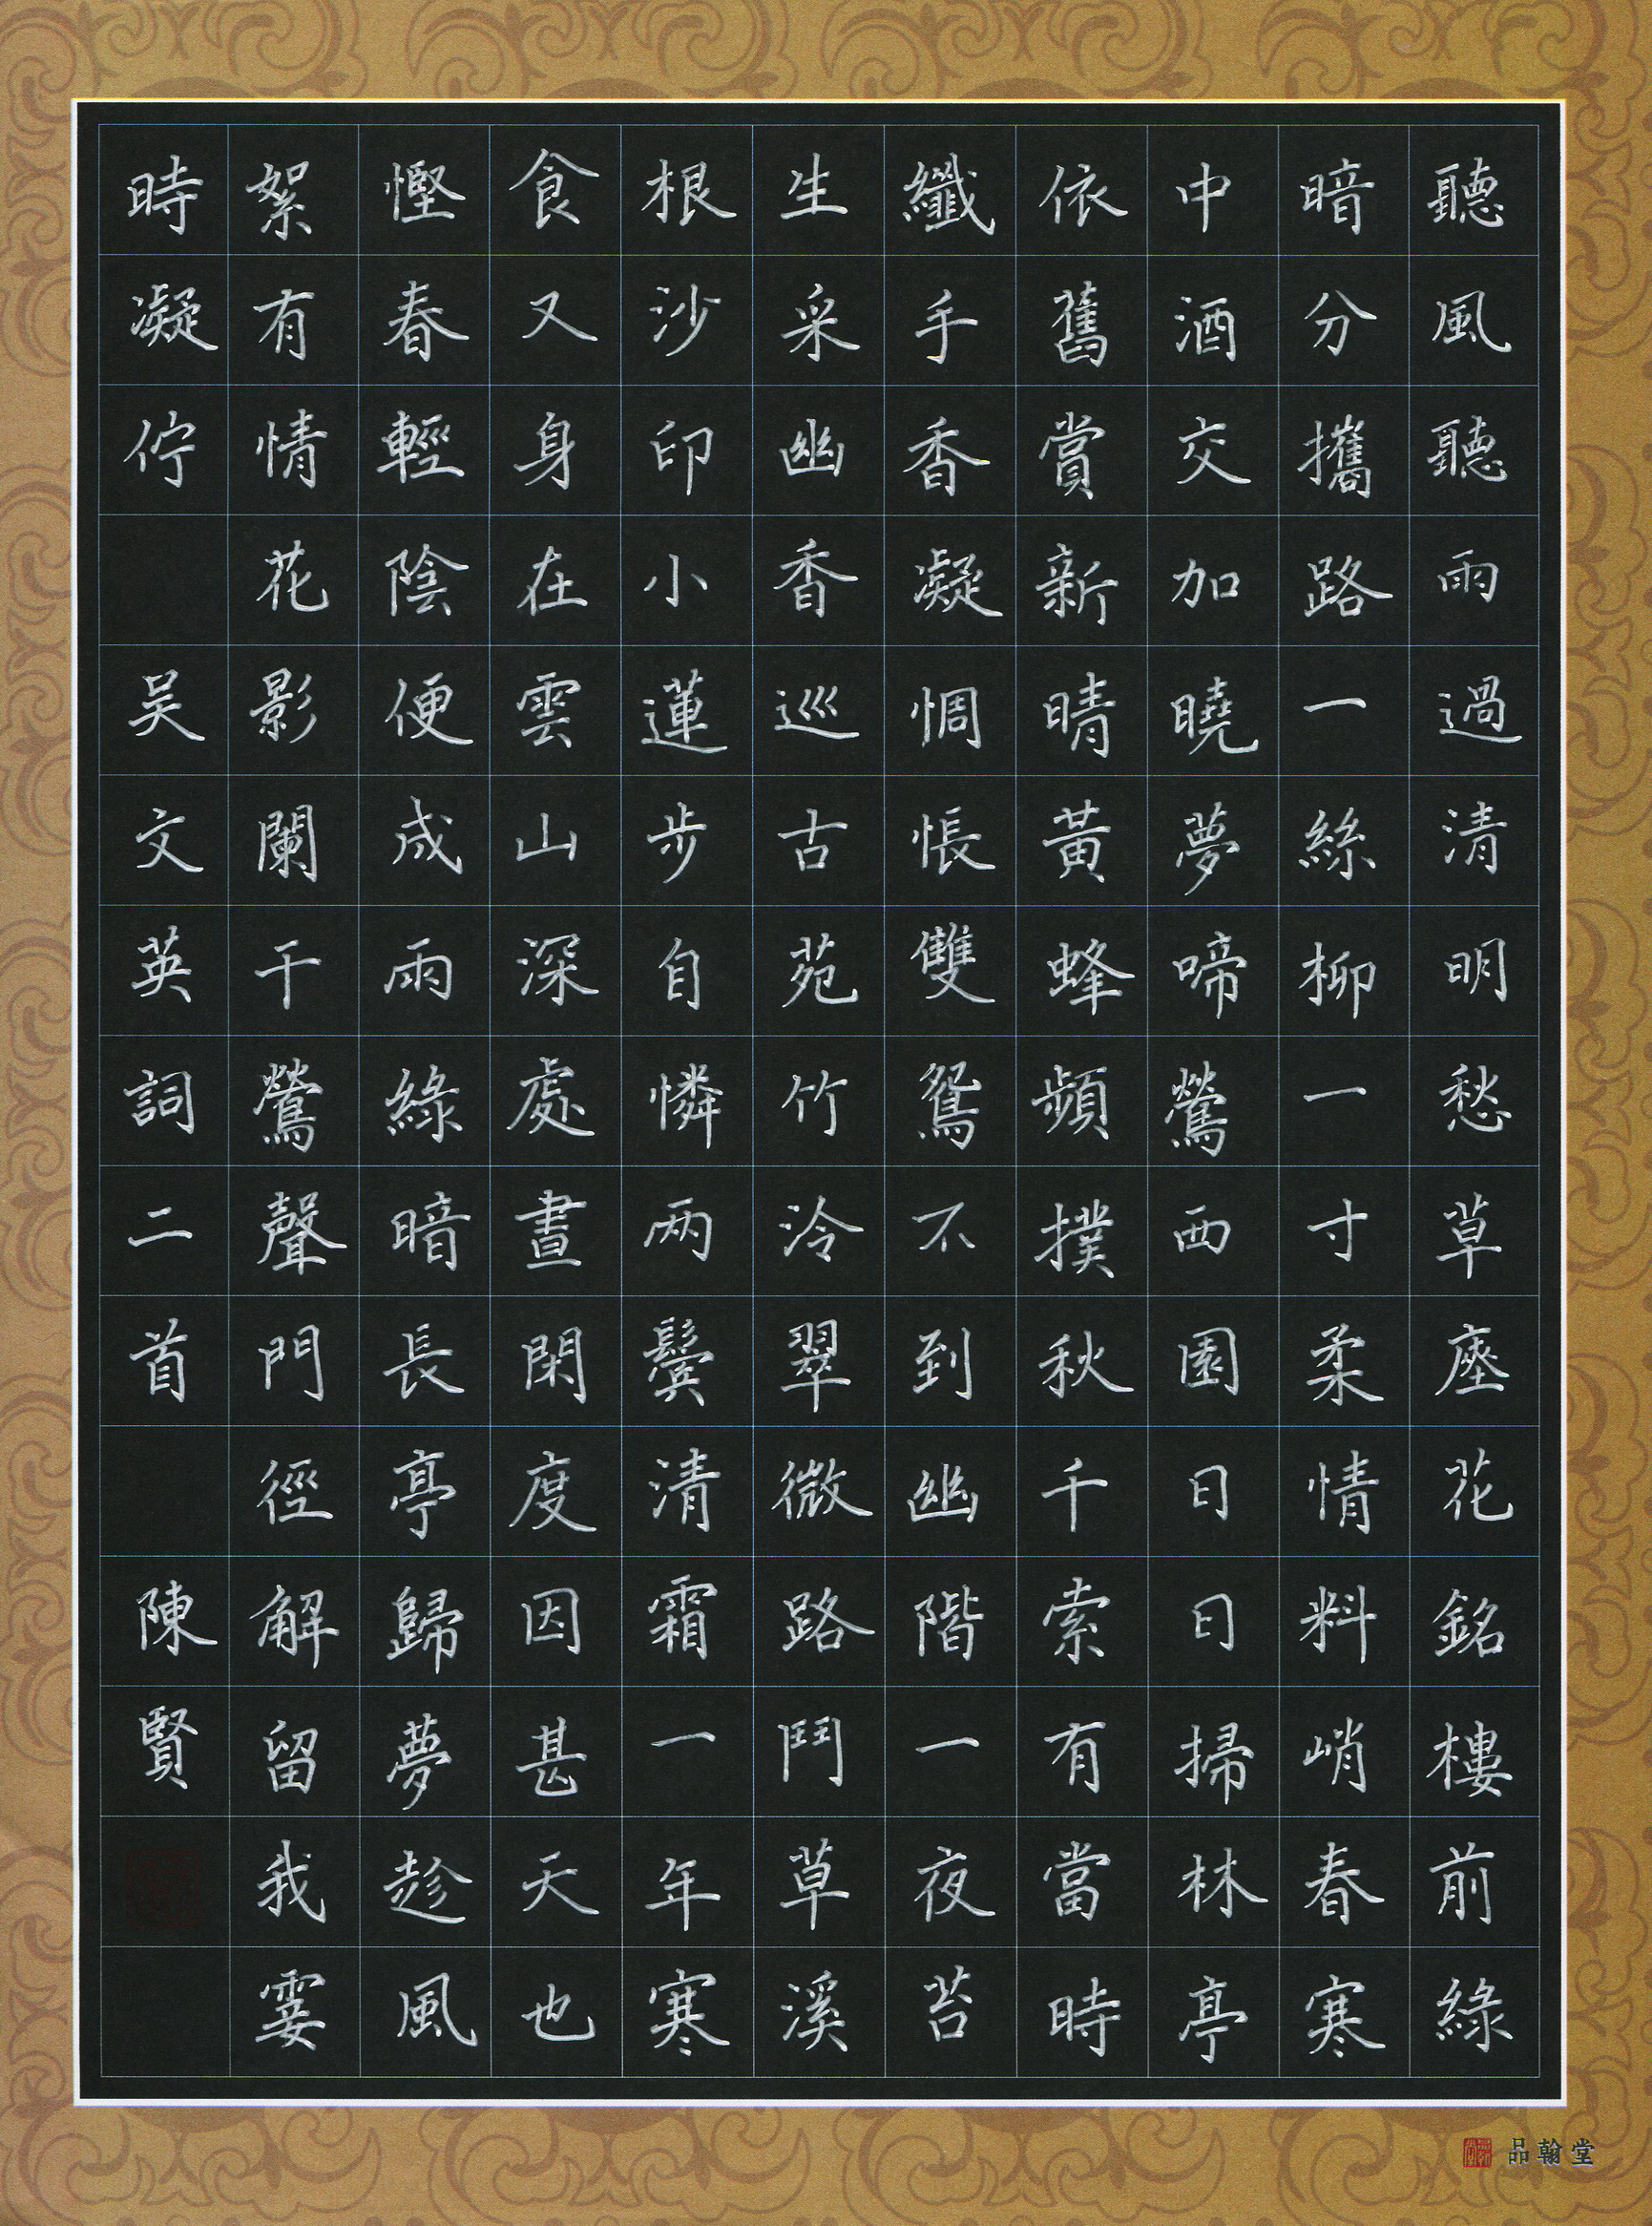 聽風聽雨過清明愁草座花銘樓前綠
暗分攜路一絲柳一寸柔情料峭春寒
中酒交加曉夢啼鶯西園日日掃林亭
依舊賞新晴黃蜂頻撲秋千索有當時
纖手香凝惆悵雙鴛不到幽階一夜苔
生采幽香巡古苑竹泠翠微路鬥草溪
根沙印小蓮步自憐兩鬢清霜一年寒
食又身在雲山深處晝閑度因甚天也
慳春輕陰便成雨綠暗長亭歸夢趁風
絮有情花影闌干鶯聲門徑解留我霎
時凝佇 吳文英詞二首 陳賢
品翰堂